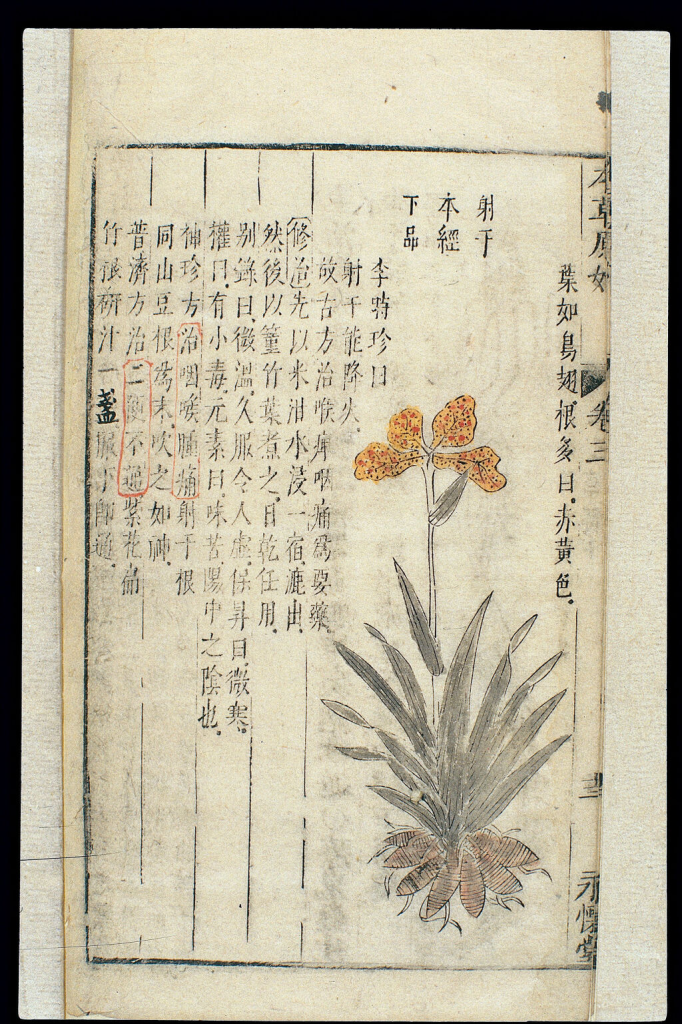 本草原始
卷三
永懷堂
葉如鳥翅根多臼赤黃色
射干
本經
下品
李時珍曰
射干能降火
故古方治喉痺咽痛爲要藥
修治先以米泔水浸一宿漉出
然後以䈽竹葉煮之日乾任用
别錄曰微溫久服令人虛保昇曰微寒
權曰有小毒元素曰味苦陽中之陰也
袖珍方治咽喉腫痛射干根
同山豆根爲末吹之如神
普濟方治二便不通紫花扁
竹根研汁一盞服